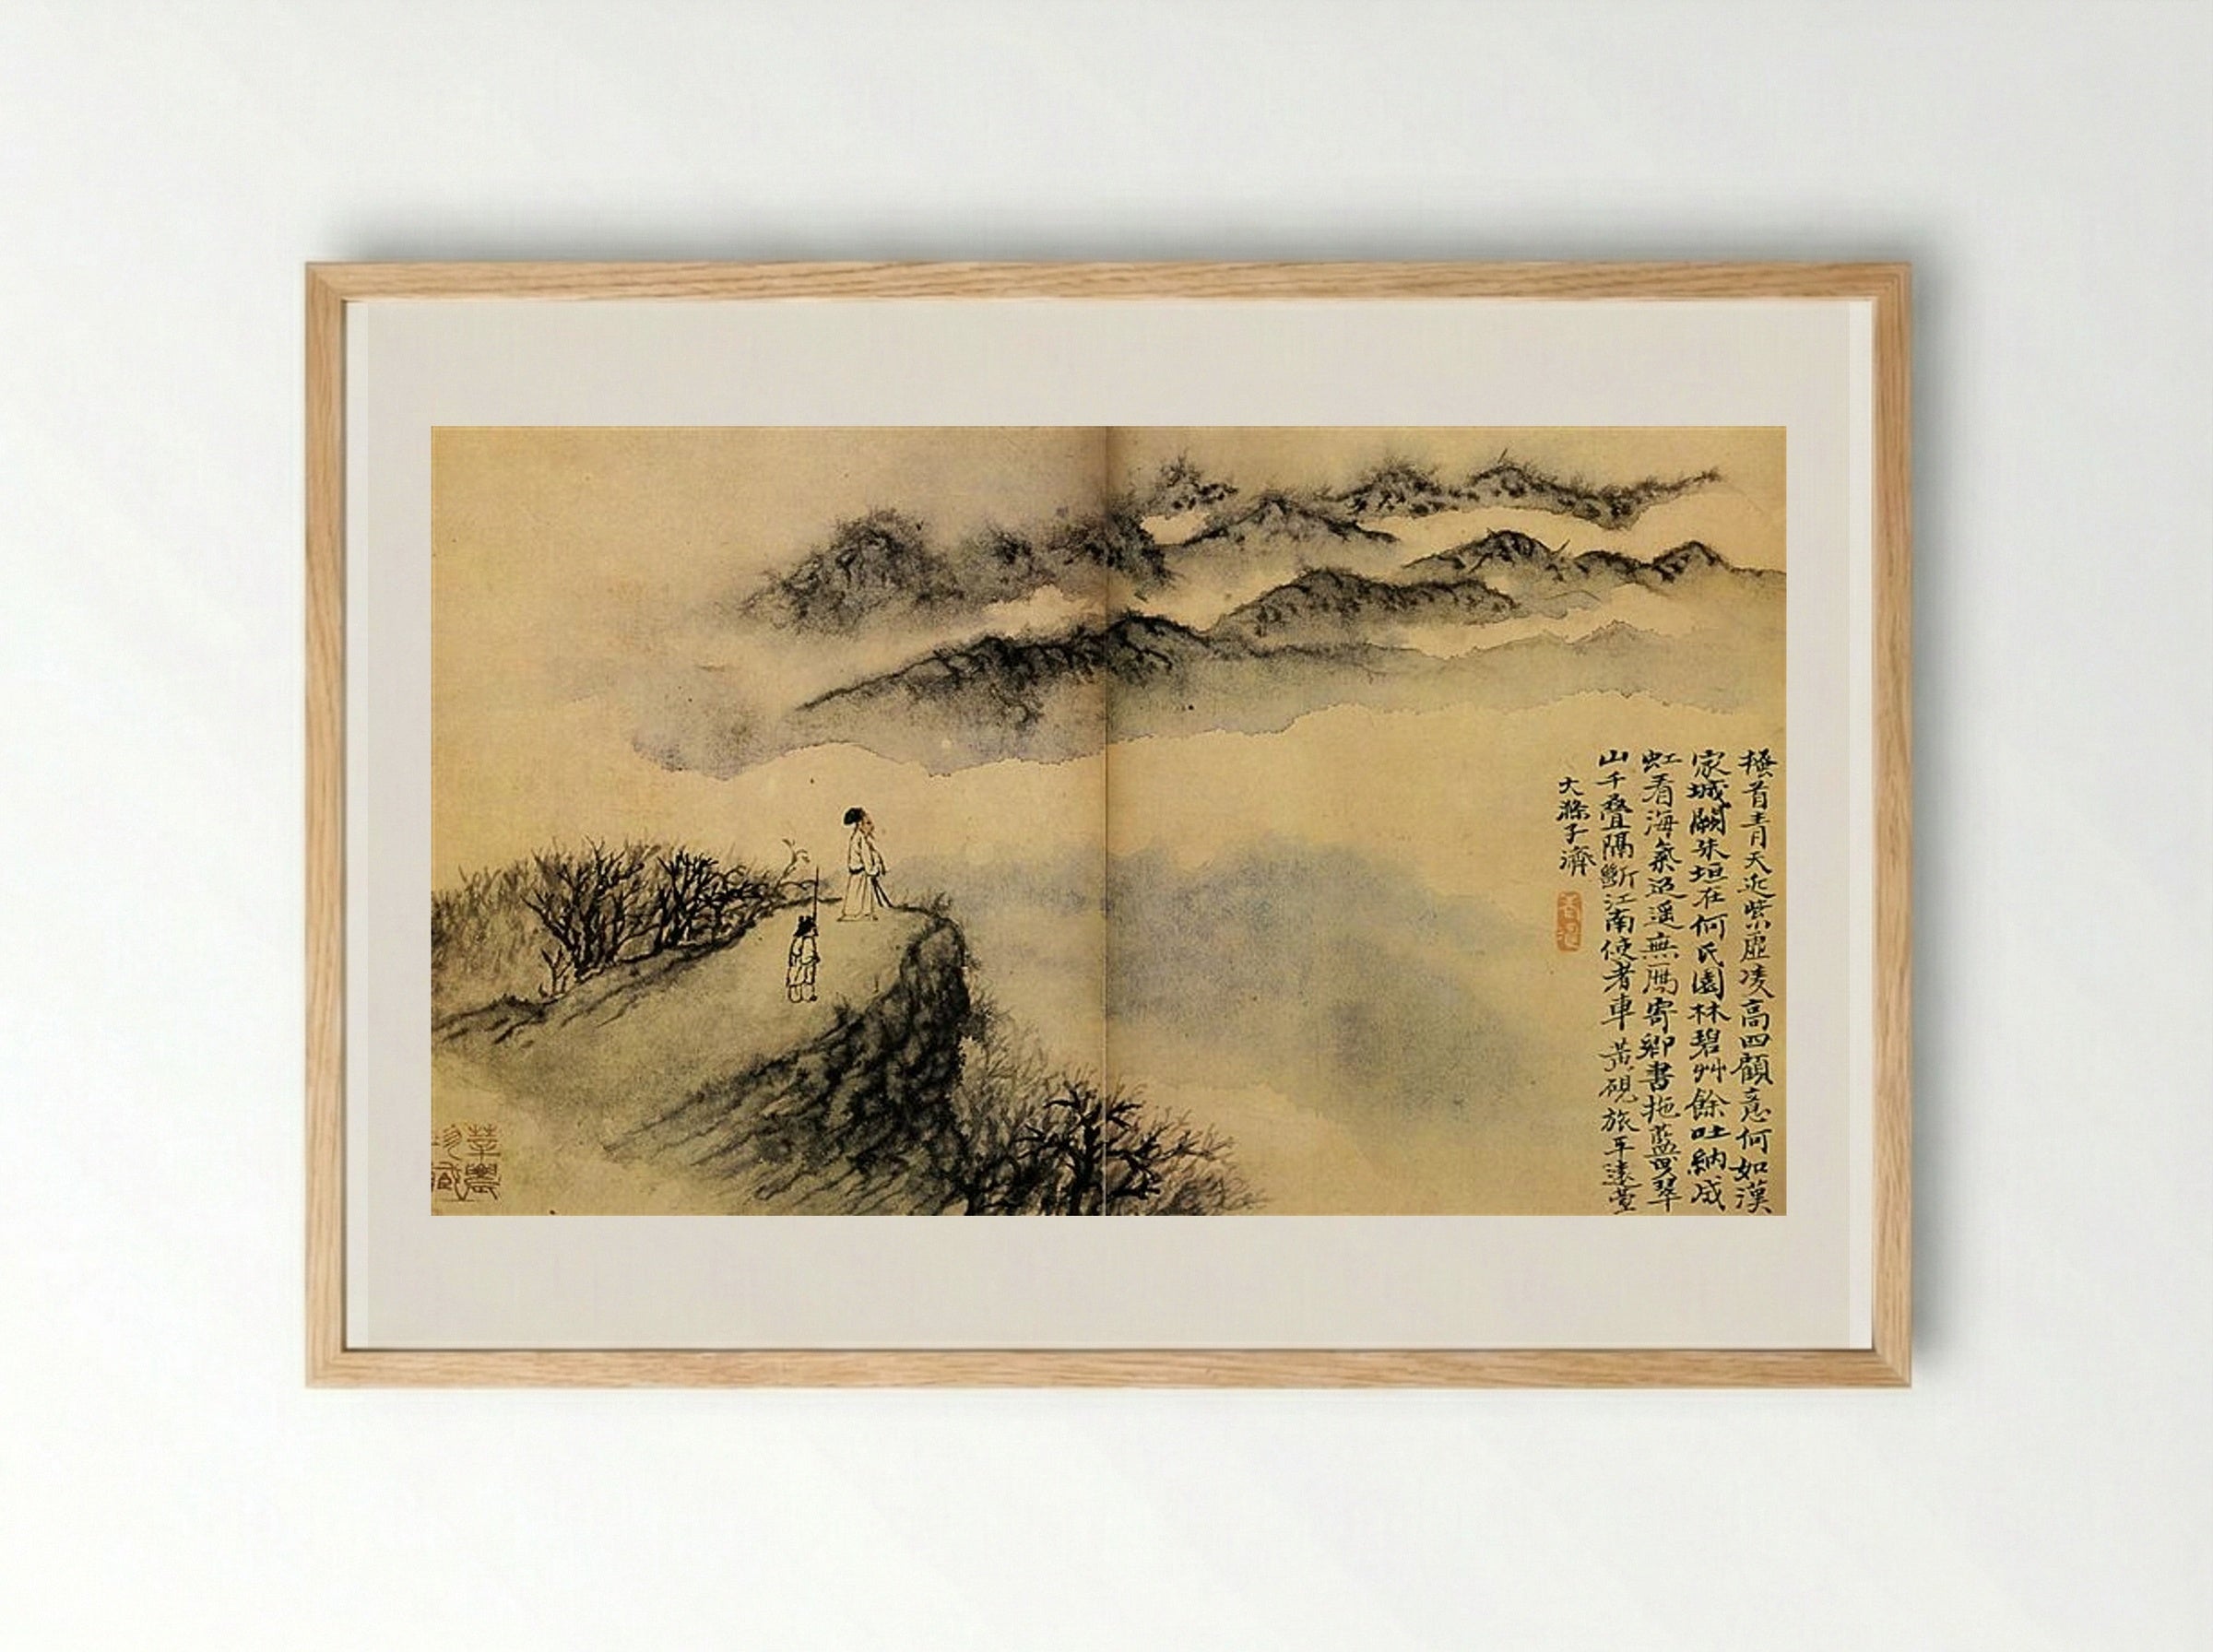 搔首青天近紫虛凌高四顧意何如漢
家城闕朱垣在何氏園林碧艸餘吐納成
虹看海氣迢遥無雁寄鄉書拖藍㬪翠
山千叠隔斷江南使者車 黃硯旅平遠臺
大滌子濟